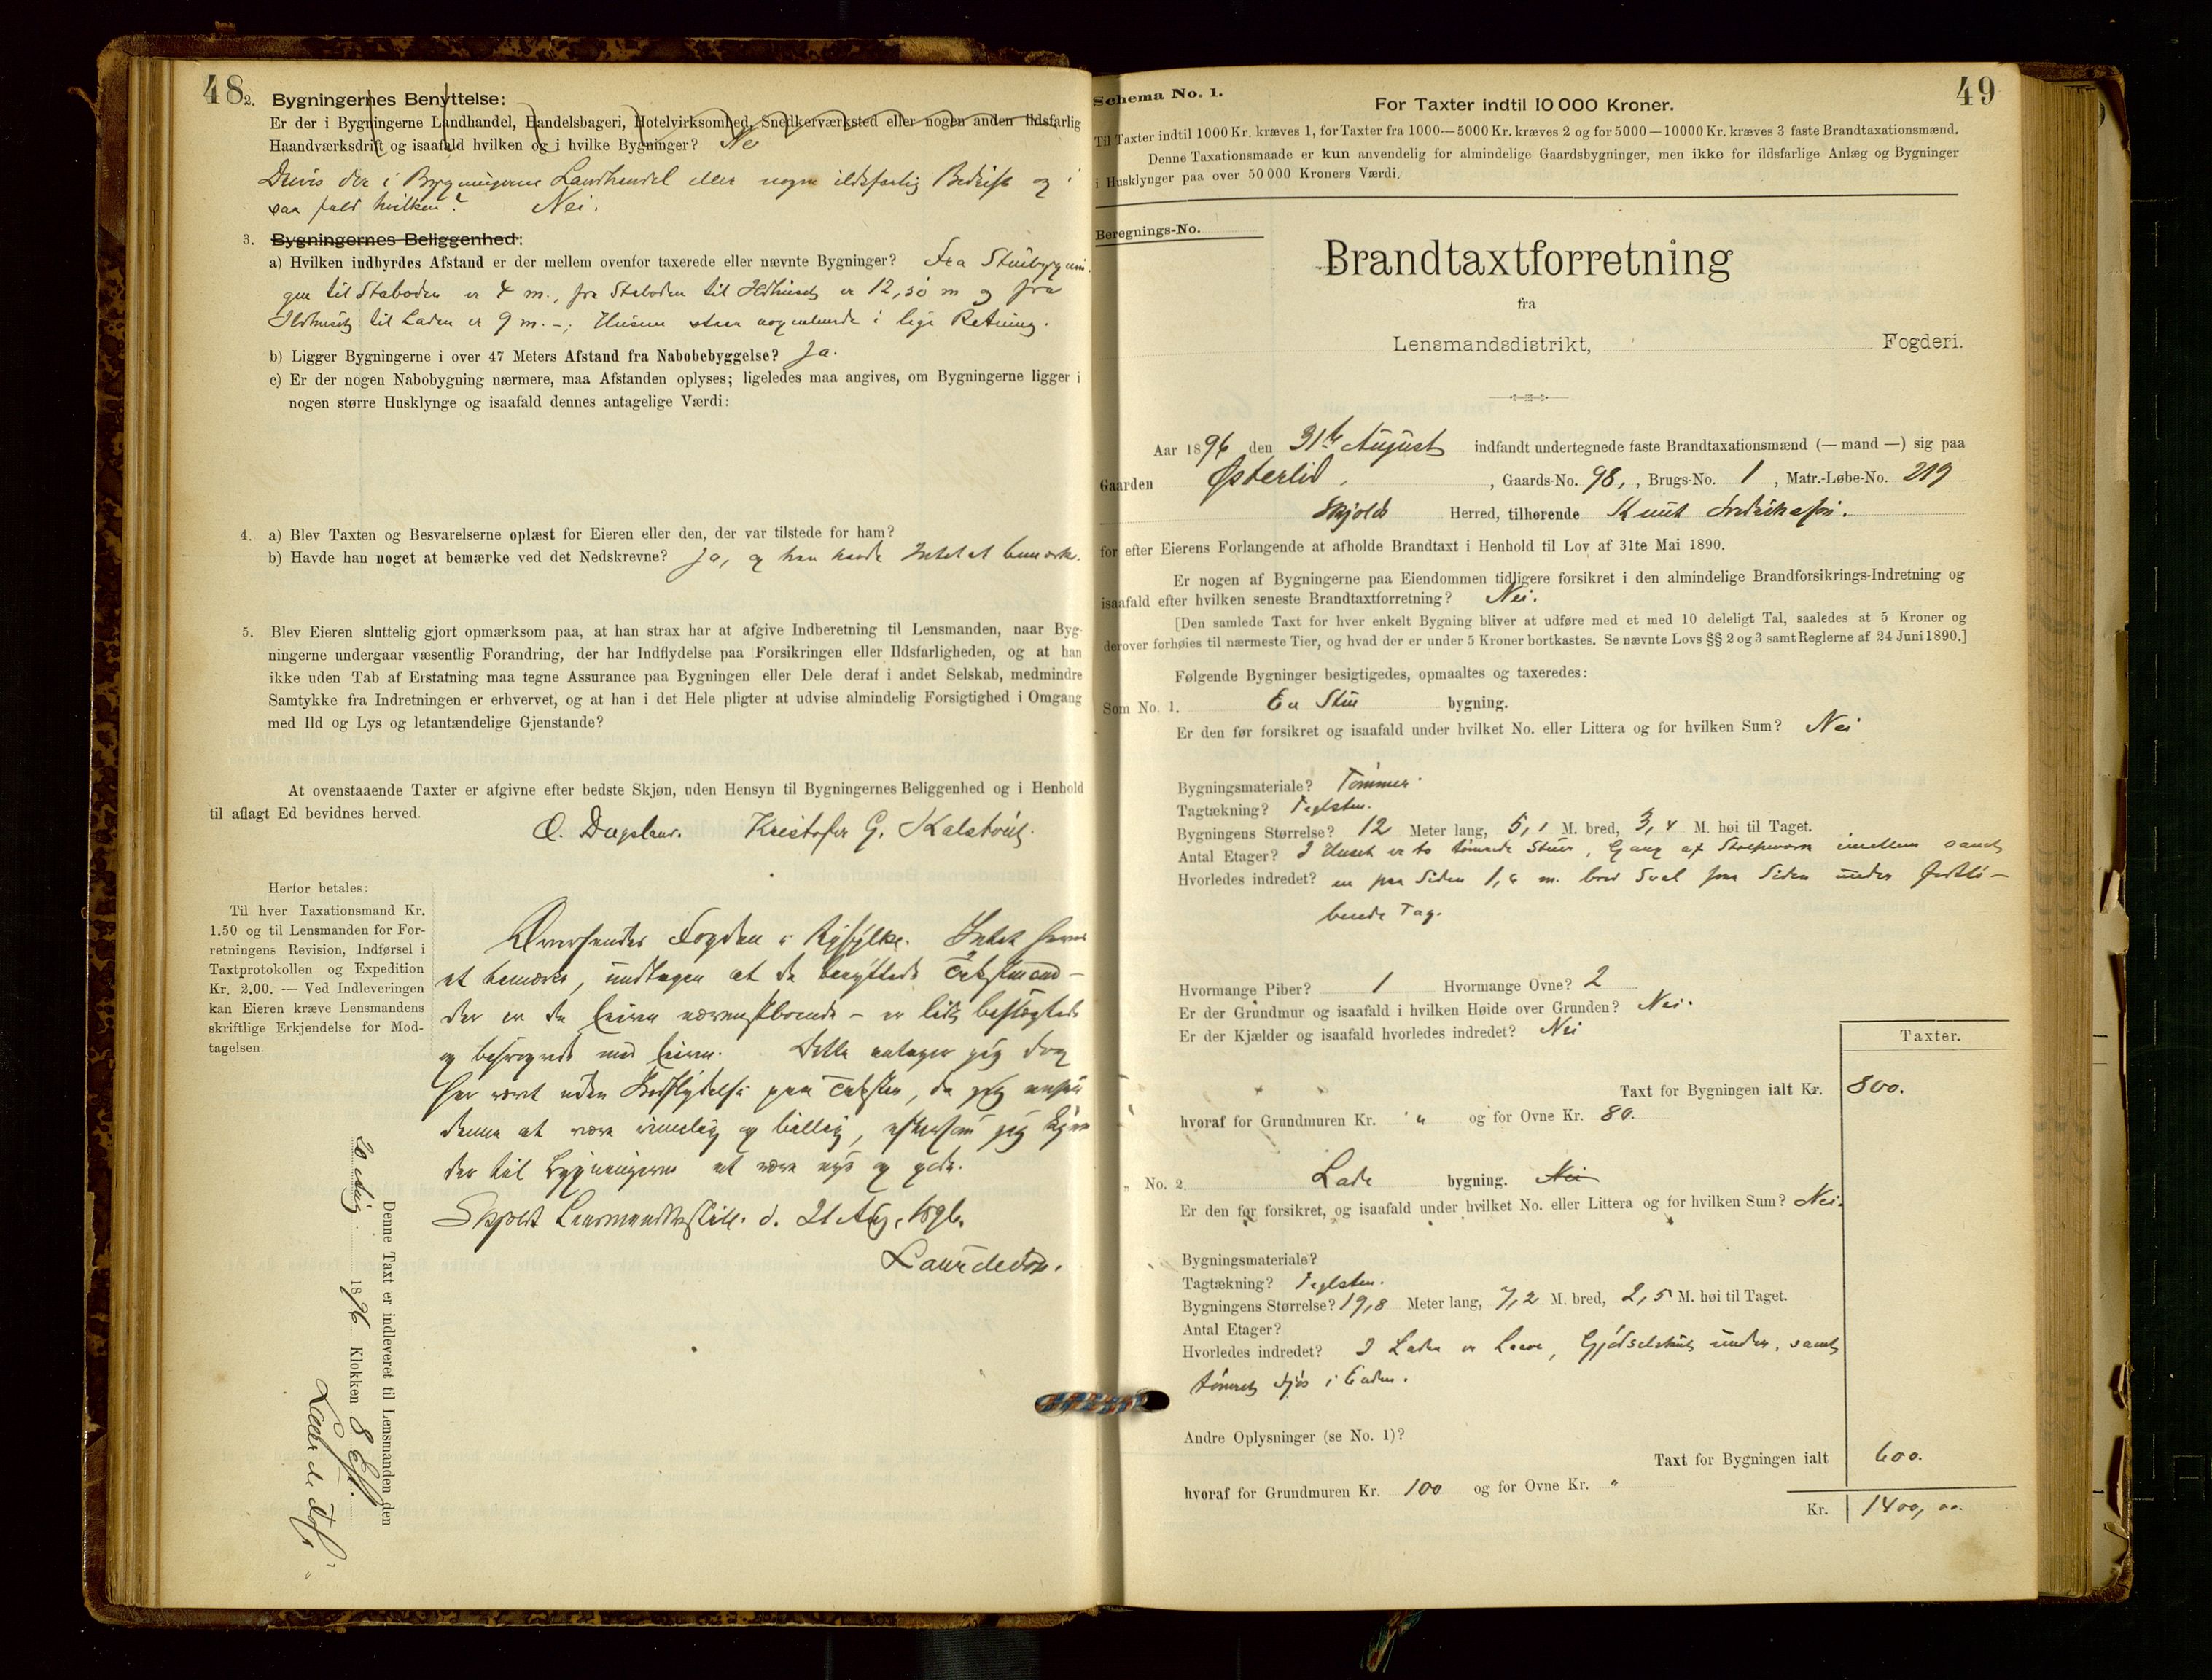 48
2. Bygningernes Benyttelse:
Er der i Bygningerne Landhandel, Handelsbageri, Hotelvirksomhed, Snedkerværksted eller nogen anden ildsfarlig
Haandværksdrift og isaafald hvilken og i hvilke Bygninger?
Drives der i Bygningerne Landhandel eller nogen ildsfarlig Bedrift og i
saa fald hvilken? Nei.
3. Bygningernes Beliggenhed:
a) Hvilken indbyrdes Afstand er der mellem ovenfor taxerede eller nævnte Bygninger? Fra Stuebygnin-
gen til Staboden er 4 m., fra Staboden til Ildhuset er 12,50 m og fra
Ildhuset til Laden er 9 m. -; Husene staar nogenlunde i lige Retning.
b) Ligger Bygningerne i over 47 Meters Afstand fra Nabobebyggelse? Ja.
c) Er der nogen Nabobygning nærmere, maa Afstanden oplyses; ligeledes maa angives, om Bygningerne ligger i
nogen større Husklynge og isaafald dennes antagelige Værdi:
4. a) Blev Taxten og Besvarelserne oplæst for Eieren eller den, der var tilstede for ham?
b) Havde han noget at bemærke ved det Nedskrevne? Ja, og han havde Intet at bemærke.
5. Blev Eieren sluttelig gjort opmærksom paa, at han strax har at afgive Indberetning til Lensmanden, naar Byg-
ningerne undergaar væsentlig Forandring, der har Indflydelse paa Forsikringen eller Ildsfarligheden, og at han
ikke uden Tab af Erstatning maa tegne Assurance paa Bygningen eller Dele deraf i andet Selskab, medmindre
Samtykke fra Indretningen er erhvervet, og at han i det Hele pligter at udvise almindelig Forsigtighed i Omgang
med Ild og Lys og letantændelige Gjenstande?
At ovenstaaende Taxter er afgivne efter bedste Skjøn, uden Hensyn til Bygningernes Beliggenhed og i Henhold
til aflagt Ed bevidnes herved.
Kristofer G.
Herfor betales:
Til hver Taxationsmand Kr.
1.50 og til Lensmanden for For-
retningens Revision, Indførsel i
Taxtprotokollen og Expedition
Kr. 2.00. — Ved Indleveringen
kan Eieren kræve Lensmandens
skriftlige Erkjendelse for Mod-
tagelsen.
Oversendes Fogden i Ryfylke. Intet haves
at bemærke, undtagen at de benyttede 2 Takstmænd -
der er de Eieren nærmestboende - er lidt beslægtede
og besvogrede med Eieren. Dette antager jeg dog
har været uden Indflydelse paa Taksten, da jeg anser
denne at være rimelig og billig, eftersom jeg kjen
der til Bygningerne at være nye og gode.
Skjold d. 21 Aug. 1896.
Denne Taxt er indleveret til Lensmanden den
20 Aug. 1896 Klokken 8 Eft.
49
Schema No. 1.
For Taxter indtil 10 000 Kroner.
Til Taxter indtil 1000 Kr. kræves 1, for Taxter fra 1000—5000 Kr. kræves 2 og for 5000—10000 Kr. kræves 3 faste Brandtaxationsmænd.
Denne Taxationsmaade er kun anvendelig for almindelige Gaardsbygninger, men ikke for ildsfarlige Anlæg og Bygninger
i Husklynger paa over 50 000 Kroners Værdi.
Beregnings-No.
Brandtaxtforretning
fra
Lensmandsdistrikt, Fogderi.
Aar 1896 den 31te August indfandt undertegnede faste Brandtaxationsmænd (— mand —) sig paa
Gaarden Østerlid, , Gaards-No. 98, , Brugs-No. 1 , Matr.-Løbe-No. 219
Skjold Herred, tilhørende Knut
for efter Eierens Forlangende at afholde Brandtaxt i Henhold til Lov af 31te Mai 1890.
Er nogen af Bygningerne paa Eiendommen tidligere forsikret i den almindelige Brandforsikrings-Indretning og
isaafald efter hvilken seneste Brandtaxtforretning? Nei.
[Den samlede Taxt for hver enkelt Bygning bliver at udføre med et med 10 deleligt Tal, saaledes at 5 Kroner og
derover forhøies til nærmeste Tier, og hvad der er under 5 Kroner bortkastes. Se nævnte Lovs §§ 2 og 3 samt Reglerne af 24 Juni 1890.]
Følgende Bygninger besigtigedes, opmaaltes og taxeredes:
Som No. 1. En Stue bygning.
Er den før forsikret og isaafald under hvilket No. eller Littera og for hvilken Sum? Nei
Bygningsmateriale? Tømmer.
Tagtækning? Teglsten.
Bygningens Størrelse? 12 Meter lang, 5,1 M. bred, 3,4 M. høi til Taget.
Antal Etager? I Huset er to tømrede Stuer, Gang af imellem samt
Hvorledes indredet? en paa Siden 1,6 m. bred Sval paa Siden under fortlø-
bende Tag.
Hvormange Piber? 1 Hvormange Ovne? 2
Er der Grundmur og isaafald i hvilken Høide over Grunden? Nei.
Er der Kjælder og isaafald hvorledes indredet? Nei
Taxter.
Taxt for Bygningen ialt Kr. 800.
hvoraf for Grundmuren Kr. " og for Ovne Kr. 80.
" No. 2. Lade bygning. Nei
Er den før forsikret, og isaafald under hvilket No. eller Littera og for hvilken Sum? Nei.
Bygningsmateriale?
Tagtækning? Teglsten.
Bygningens Størrelse? 19,8 Meter lang, 7,2 M. bred, 2,5 M. høi til Taget.
Antal Etager?
Hvorledes indredet? I Laden er Laave, Gjødselshus under, samt
tømret Fjøs i Enden.
Andre Oplysninger (se No. 1)?
Taxt for Bygningen ialt 600.
hvoraf for Grundmuren Kr. 100 og for Ovne Kr. "
Kr. 1400,00.